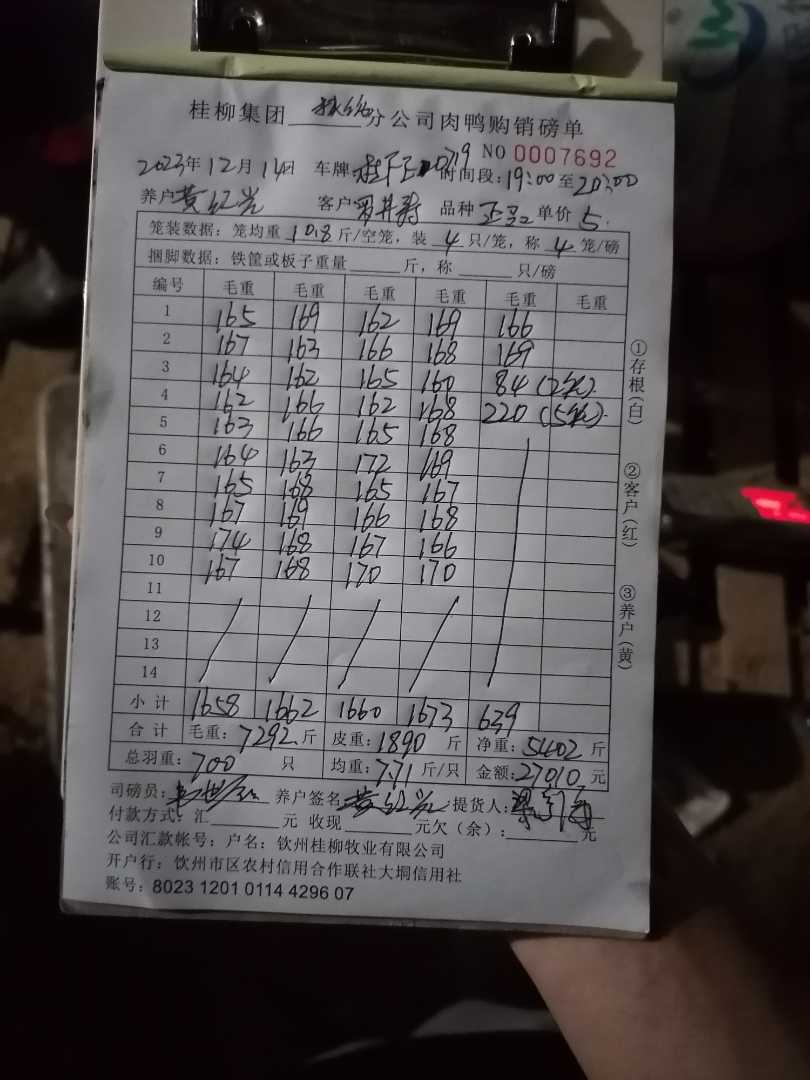 桂柳集团____分公司肉鸭购销磅单
NO 0007692
2023年12月14日 车牌: 0719 时间段:19:00至20:00
养户黄红光 客户 品种 单价5.
笼装数据: 笼均重10.8斤/空笼, 装4只/笼, 称4笼/磅
捆脚数据: 铁筐或板子重量____斤, 称____只/磅
编号 毛重 毛重 毛重 毛重 毛重 毛重
1 165 169 162 169 166
2 167 163 166 168 169
3 164 162 165 160 84(2笼)
4 162 166 162 168 220(5笼).
5 163 166 165 168
6 164 163 172 169
7 165 168 165 167
8 167 169 166 168
9 174 168 167 166
10 167 168 170 170
11
12
13
14
小计 1658 1662 1660 1673 639
合计 毛重:7292斤 皮重:1890斤 净重:5402斤
总羽重:700只 均重:7.71斤/只 金额:27010元
司磅员: 养户签名黄红光 提货人:
付款方式: 汇____元 收现____元欠(余):____元
公司汇款帐号: 户名: 钦州桂柳牧业有限公司
开户行: 钦州市区农村信用合作联社大垌信用社
账号: 8023 1201 0114 4296 07
①存根(白)
②客户(红)
③养户(黄)